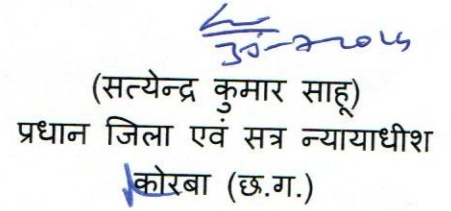 30-7-2025
(सत्येन्द्र कुमार साहू)
प्रधान जिला एवं सत्र न्यायाधीश
कोरबा (छ.ग.)